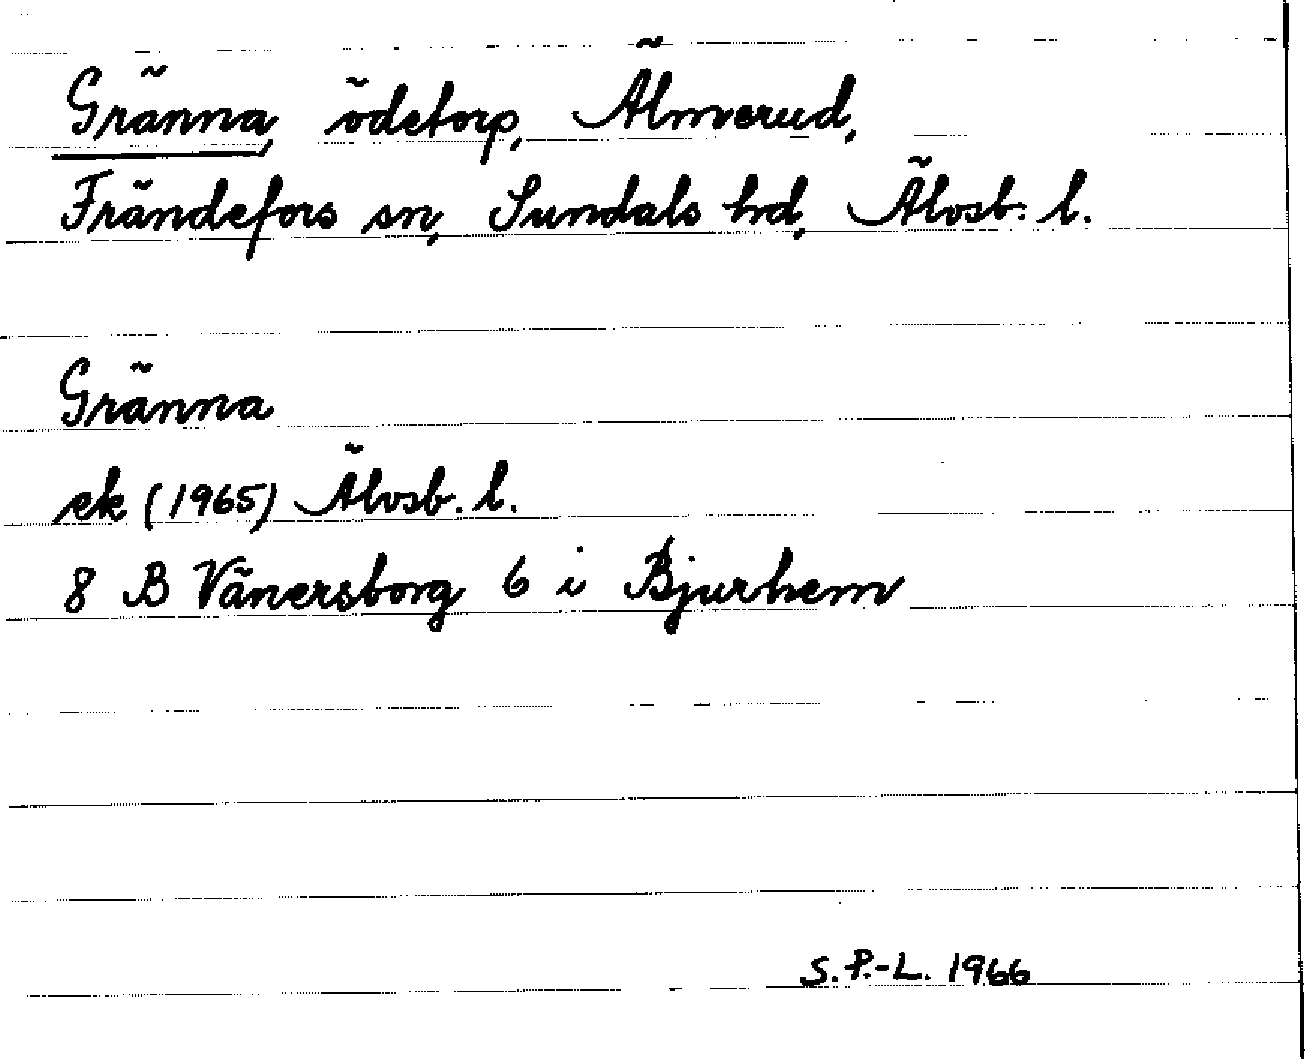 Gränna, ödetorp, Älmverud,
Frändefors sn, Sundals hd, Älvsb. l.
Gränna
ek (1965) Älvsb. l.
8 B Vänersborg 6 i Bjurhem
S. P.-L. 1966